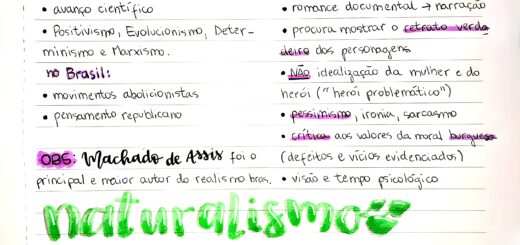 • avanço científico
• Positivismo, Evolucionismo, Deter-
minismo e Marxismo.
no Brasil:
• movimentos abolicionistas
• pensamento republicano
OBS: Machado de Assis foi o
principal e maior autor do realismo bras.
• romance documental → narração
• procura mostrar o retrato verda
deiro dos personagens
• NÃO idealização da mulher e do
herói ("herói problemático")
• pessimismo, ironia, sarcasmo
• crítica aos valores da moral burguesa
(defeitos e vícios evidenciados)
• visão e tempo psicológico
naturalismo